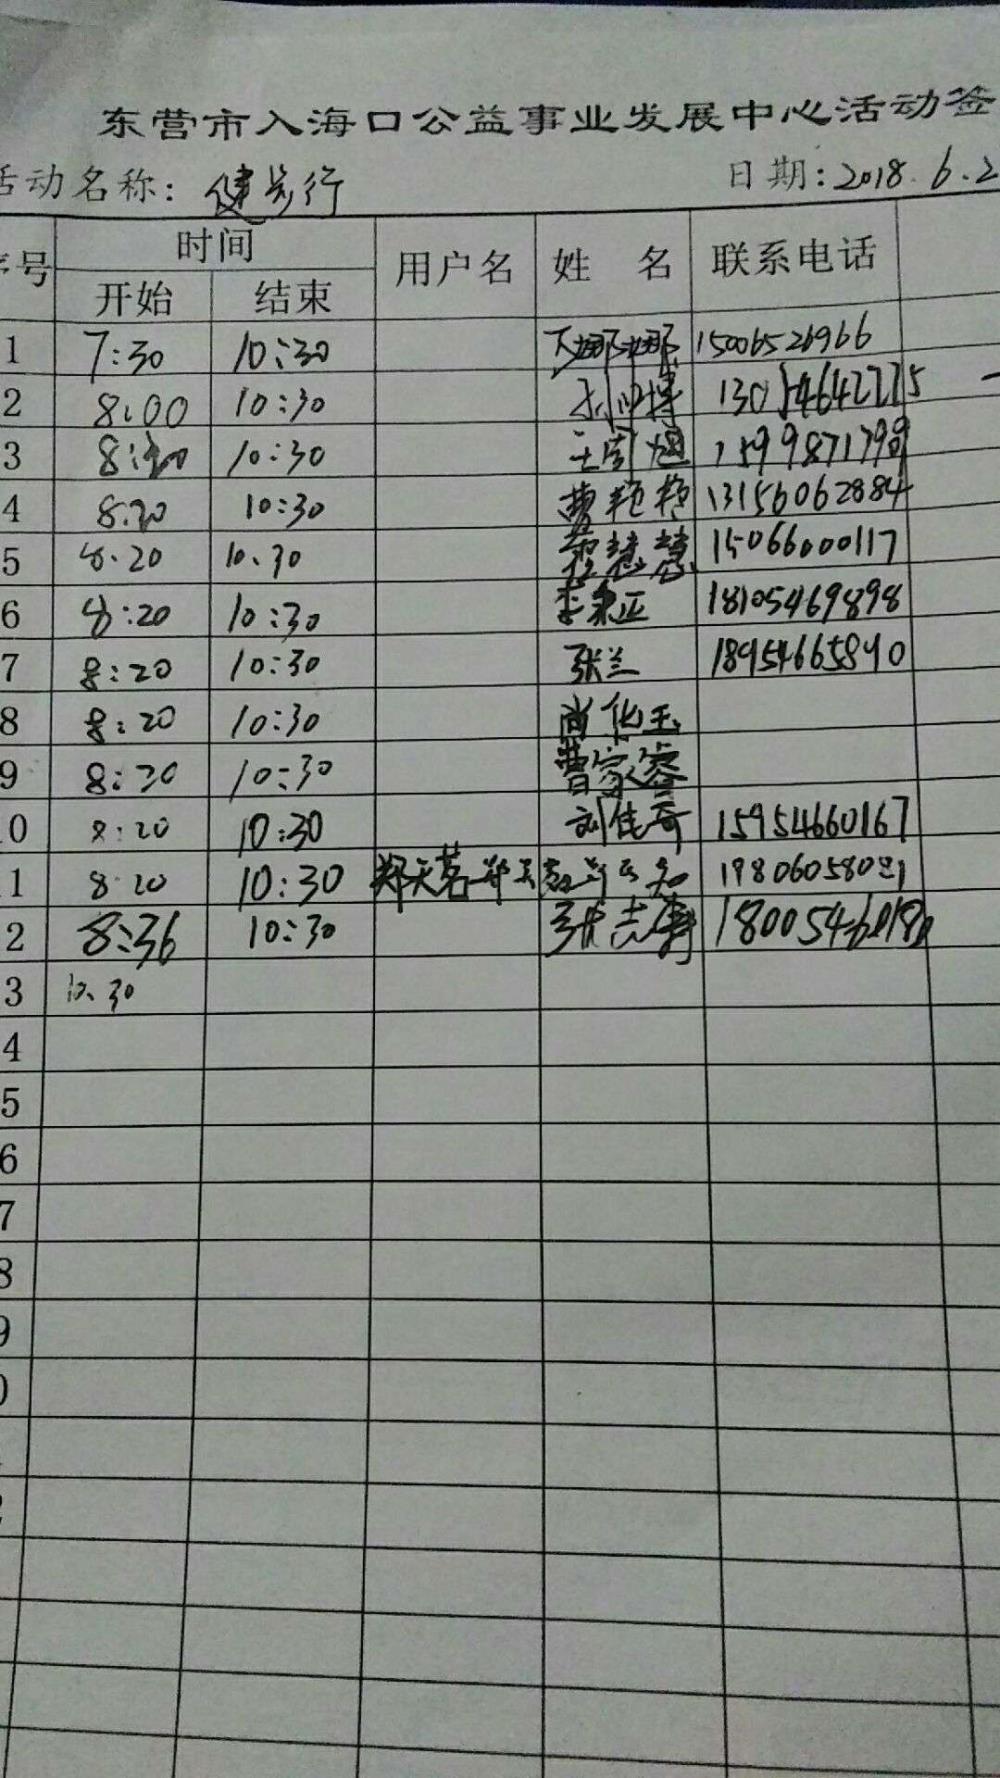 东营市入海口公益事业发展中心活动签
活动名称: 健步行 日期: 2018.6.2
序号 时间 用户名 姓名 联系电话
开始 结束
1 7:30 10:30 娜娜 15006526966
2 8:00 10:30 13054642225
3 10:30 15998717
4 8.20 10:30 艳艳 13156062884
5 8.20 10.30 慧慧 15066000117
6 8:20 10:30 李秉正 18105469898
7 8:20 10:30 张兰 18954665890
8 8:20 10:30 尚化玉
9 8:20 10:30 曹家睿
0 8:20 10:30 刘佳奇 15954660167
1 8.20 10:30 郑天茗
2 8:36 10:30 张吉 180054
3 10.30
4
5
6
7
8
9
0
2